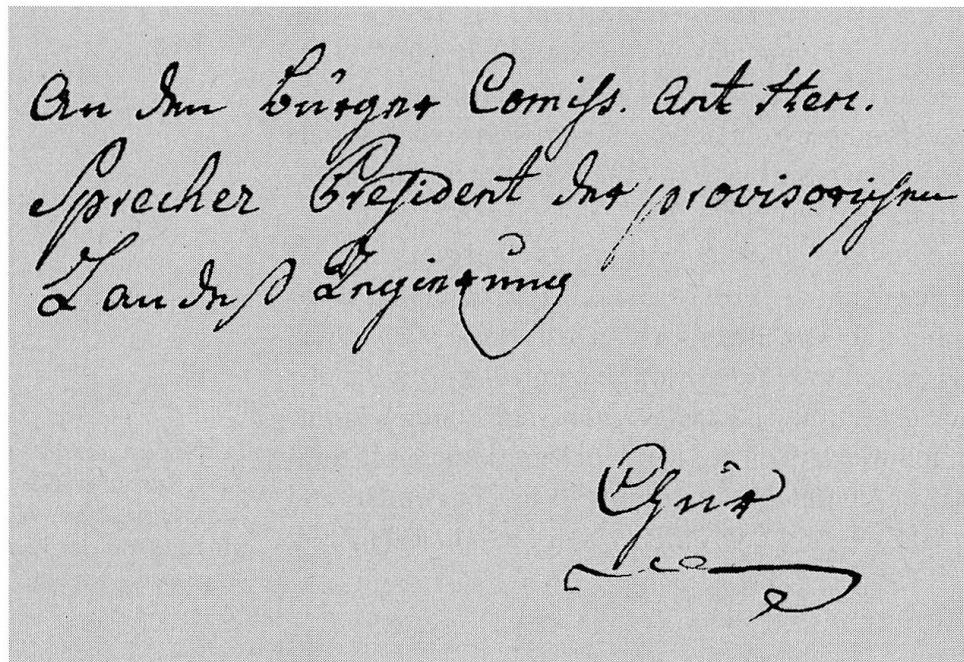 An den Bürger Comiss. Ant Herc.
Sprecher President der provisorischen
Landeß Regierung
Chur